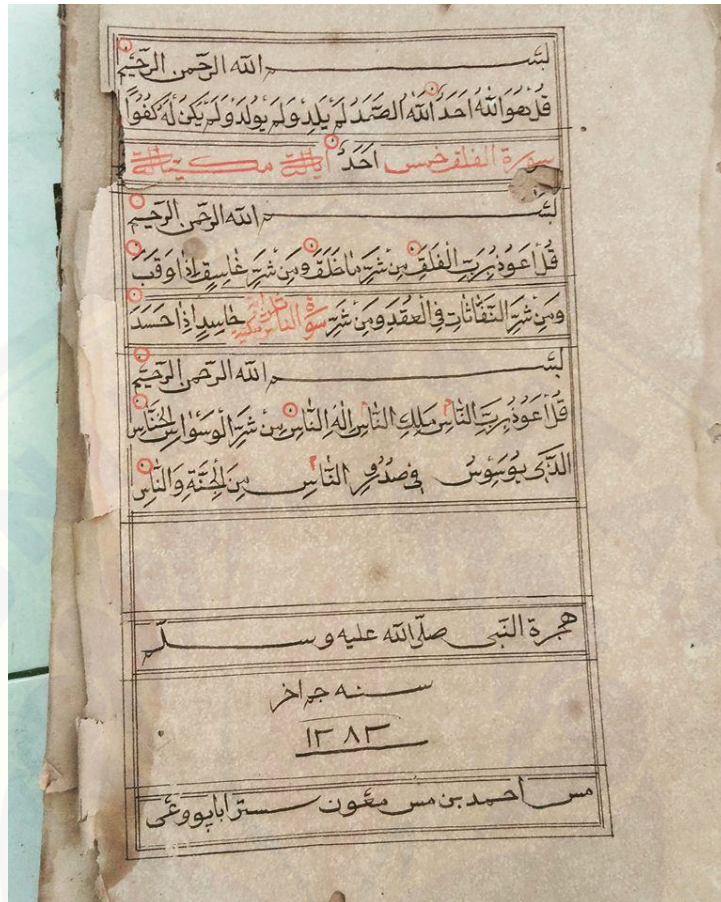 بسم الله الرحمن الرحيم
قل هو الله احد الله الصمد لم يلد ولم يولد ولم يكن له كفوا
سورة الفلق خمس احد اياتة مكية
بسم الله الرحمن الرحيم
قل اعوذ برب الفلق من شر ما خلق ومن شر غاسق اذا وقب
ومن شر النفاثات في العقد ومن شر حاسد اذا حسد
بسم الله الرحمن الرحيم
قل اعوذ برب الناس ملك الناس اله الناس من شر الوسواس الخناس
الذى يوسوس فى صدور الناس من الجنة والناس
هجرة النبى صلى الله عليه وسلم
سنه جر اخر
١٢٨٣
مس احمد بن مس معون